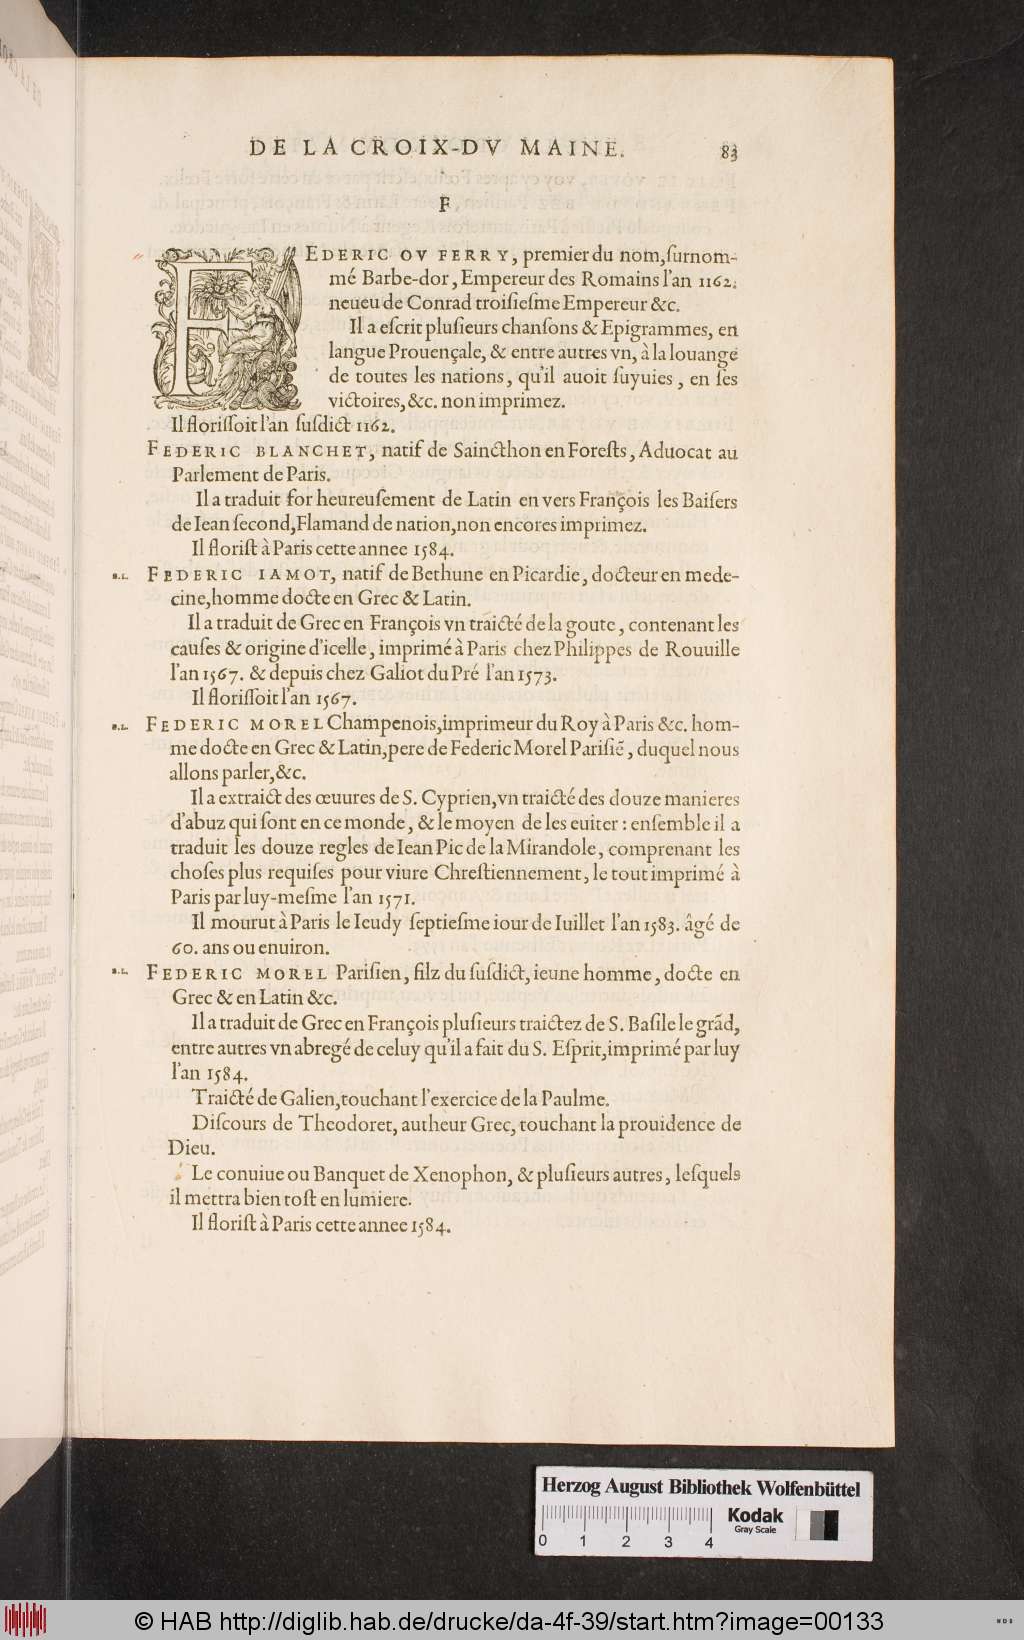 DE LA CROIX-DV MAINE. 83
F
FEDERIC OV FERRY, premier du nom, ſurnom-
mé Barbe-dor, Empereur des Romains l'an 1162.
neueu de Conrad troiſieſme Empereur &c.
Il a eſcrit pluſieurs chanſons & Epigrammes, en
langue Prouençale, & entre autres vn, à la louange
de toutes les nations, qu'il auoit ſuyuies, en ſes
victoires, &c. non imprimez.
Il floriſſoit l'an ſuſdict 1162.
FEDERIC BLANCHET, natif de Saincthon en Foreſts, Aduocat au
Parlement de Paris.
Il a traduit for heureuſement de Latin en vers François les Baiſers
de Iean ſecond, Flamand de nation, non encores imprimez.
Il floriſt à Paris cette annee 1584.
B.L. FEDERIC IAMOT, natif de Bethune en Picardie, docteur en mede-
cine, homme docte en Grec & Latin.
Il a traduit de Grec en François vn traicté de la goute, contenant les
cauſes & origine d'icelle, imprimé à Paris chez Philippes de Rouuille
l'an 1567. & depuis chez Galiot du Pré l'an 1573.
Il floriſſoit l'an 1567.
B.L. FEDERIC MOREL Champenois, imprimeur du Roy à Paris &c. hom-
me docte en Grec & Latin, pere de Federic Morel Pariſiẽ, duquel nous
allons parler, &c.
Il a extraict des œuures de S. Cyprien, vn traicté des douze manieres
d'abuz qui ſont en ce monde, & le moyen de les euiter : enſemble il a
traduit les douze regles de Iean Pic de la Mirandole, comprenant les
choſes plus requiſes pour viure Chreſtiennement, le tout imprimé à
Paris par luy-meſme l'an 1571.
Il mourut à Paris le Ieudy ſeptieſme iour de Iuillet l'an 1583. âgé de
60. ans ou enuiron.
B.L. FEDERIC MOREL Pariſien, filz du ſuſdict, ieune homme, docte en
Grec & en Latin &c.
Il a traduit de Grec en François pluſieurs traictez de S. Baſile le grãd,
entre autres vn abregé de celuy qu'il a fait du S. Eſprit, imprimé par luy
l'an 1584.
Traicté de Galien, touchant l'exercice de la Paulme.
Diſcours de Theodoret, autheur Grec, touchant la prouidence de
Dieu.
Le conuiue ou Banquet de Xenophon, & pluſieurs autres, leſquels
il mettra bien toſt en lumiere.
Il floriſt à Paris cette annee 1584.
Herzog August Bibliothek Wolfenbüttel
Kodak
Gray Scale
0 1 2 3 4
© HAB http://diglib.hab.de/drucke/da-4f-39/start.htm?image=00133